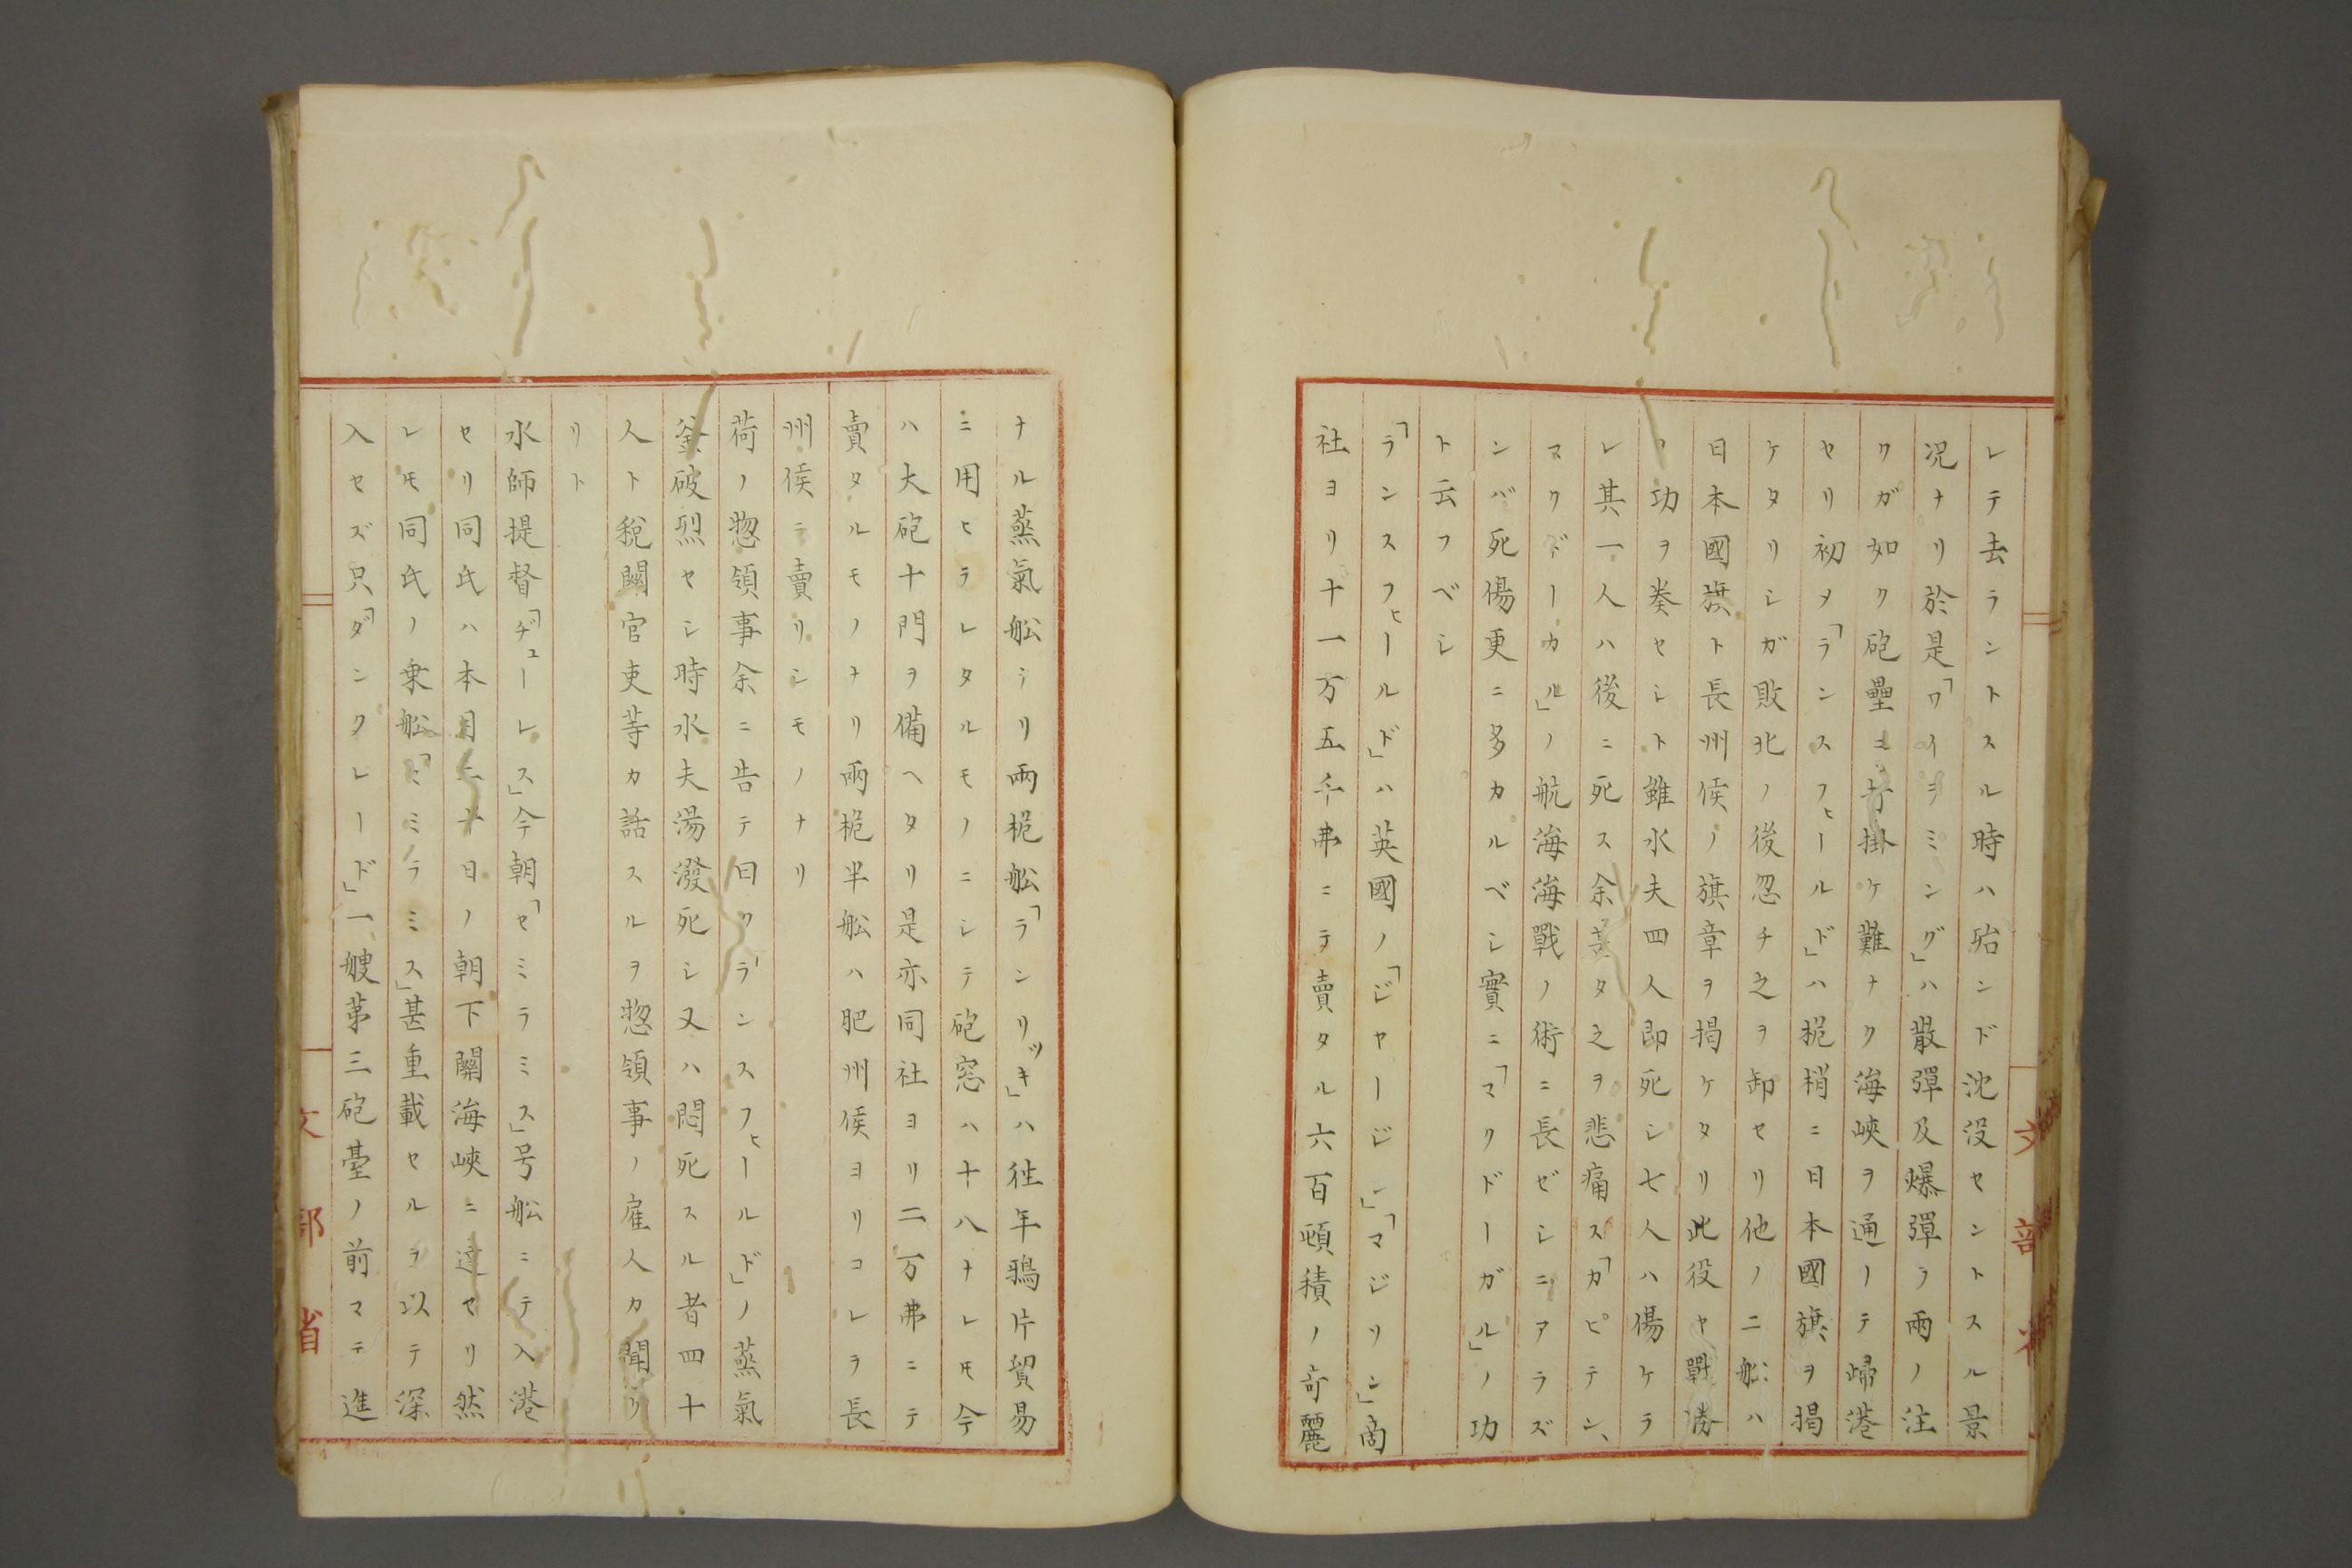 レテ去ラントスル時ハ殆ンド沈没セントスル景
況ナリ於是「ワイヲミング」ハ散彈及爆彈ノ雨ノ注
クガ如ク砲壘ニ打掛ケ難ナク海峽ヲ通ーテ帰港
セリ初メ「ランスフヒールド」ハ桅梢ニ日本國旗ヲ揭
ケタリシガ敗北ノ後忽チ之ヲ卸セリ他ノ二船ハ
日本國旗ト長州侯ノ旗章ヲ揭ケタリ此役ヤ戰勝
功ヲ奏セシト雖水夫四人即死シ七人ハ傷ケラ
レ其一人ハ後ニ死ス余甚タ之ヲ悲痛ス「カピテン、
マクドーカル」ノ航海海戰ノ術ニ長ゼシニアラズ
ンバ死傷更ニ多カルベシ實ニ「マクドーガル」ノ功
ト云フベシ
「ランスフヒールド」ハ英國ノ「ジャージン」「マジリン」商
社ヨリ十一万五千弗ニテ賣タル六百頓積ノ奇麗
ナル蒸氣舩ラリ兩桅舩「ランリッキ」ハ徃年鴉片貿易
ニ用ヒラレタルモノニシテ砲窓ハ十八ナレ𪜈今
ハ大砲十門ヲ備ヘタリ是亦同社ヨリ二万弗ニテ
賣タルモノナリ兩桅半舩ハ肥州侯ヨリコレヲ長
州侯ニ賣リシモノナリ
荷ノ惣領事余ニ告テ曰ク「ランスフヒールド」ノ蒸氣
釜破烈セシ時水夫湯潑死シ又ハ悶死スル者四十
人ト稅關官吏等カ話スルヲ惣領事ノ雇人カ聞ケ
リト
水師提督「ヂューレス」今朝「セミラミス」号舩ニテ入港
セリ同氏ハ本月二十日ノ朝下關海峽ニ達セリ然
レ𪜈同氏ノ乗舩「セミラミス」甚重載セルヲ以テ深
入セズ只「ダンクレード」一艘第三砲臺ノ前マテ進
文部省
文部省